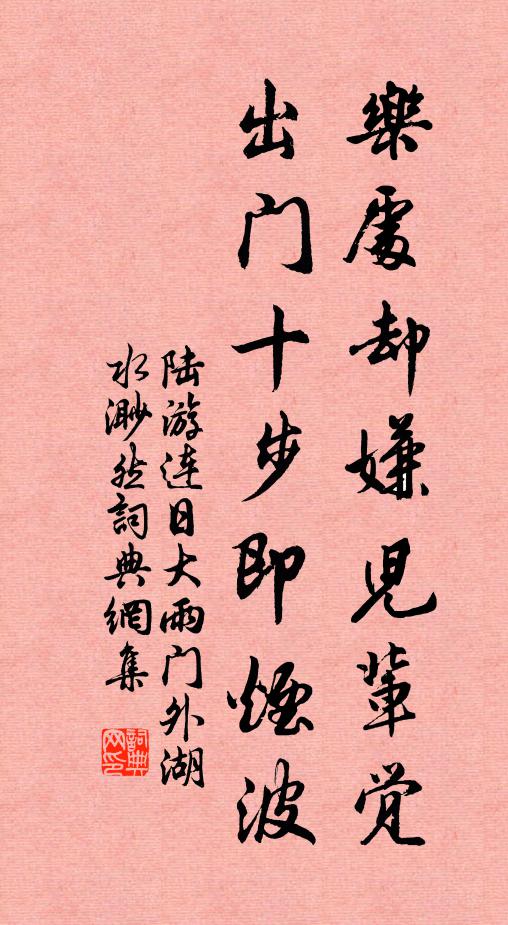 樂處却嫌兒輩覚
出门十步即煙波
陆游连日大雨门外湖
水渺然詞典網集
詞典网印